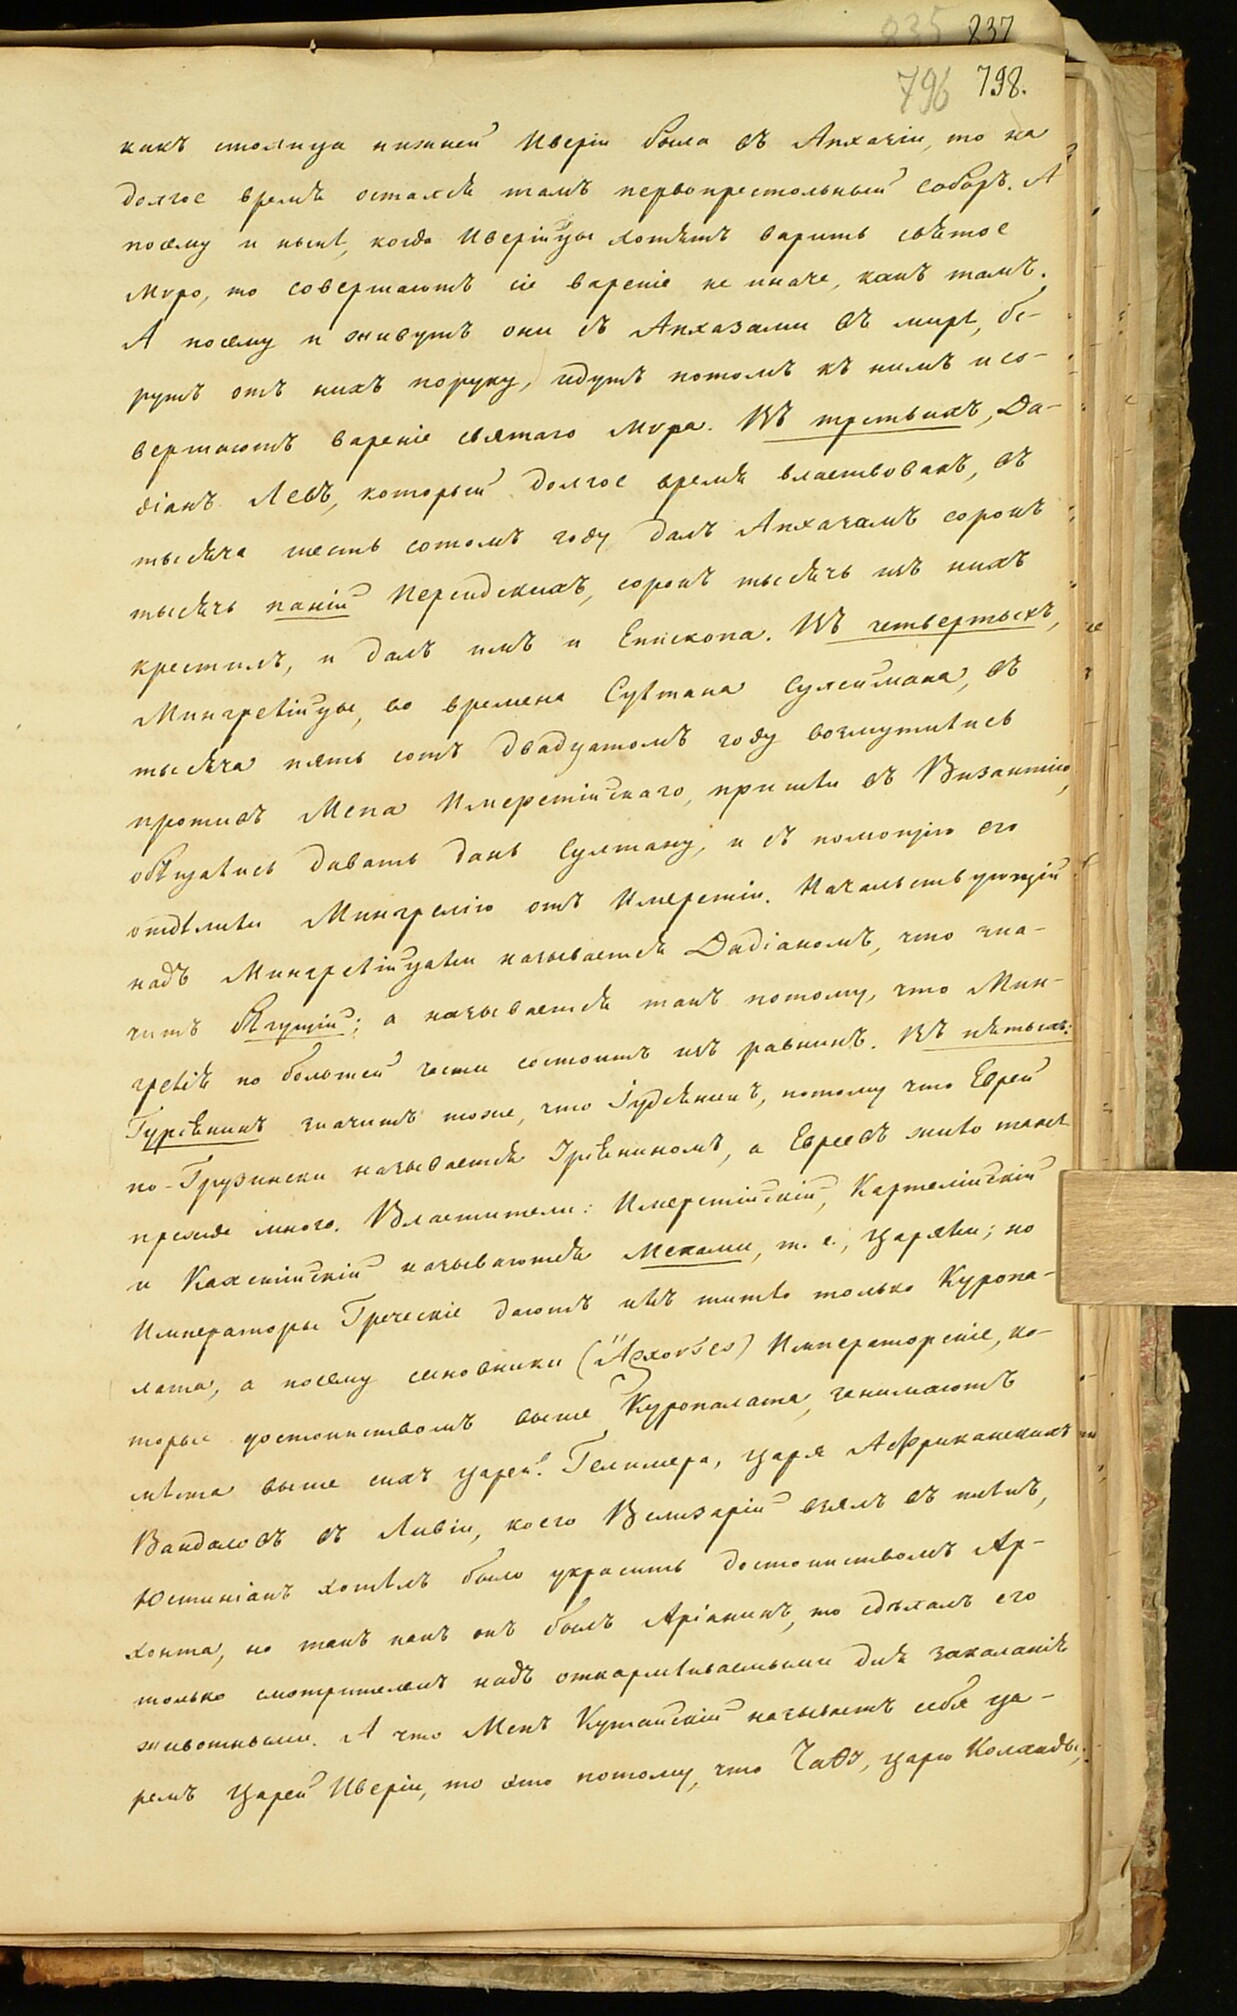 835 837
796 798.
какъ столица нижней Иверіи была въ Апхазіи, то на
долгое время остался тамъ первопрестольный соборъ. А
посему и нынѣ, когда Иверійцы хотятъ варить святое
Мѵро, то совершаютъ сіе вареніе не иначе, какъ тамъ.
А посему и живутъ они съ Апхазами въ мирѣ, бе-
рутъ отъ нихъ поруку, идутъ потомъ къ нимъ и со-
вершаютъ вареніе святаго Мѵра. Въ третьихъ, Да-
діанъ Левъ, который долгое время властвовалъ, въ
тысяча шесть сотомъ году далъ Апхазамъ сорокъ
тысячъ паній Персидскихъ, сорокъ тысячъ изъ нихъ
крестилъ, и далъ имъ и Епископа. Въ четвертыхъ,
Мингрелійцы, во времена Султана Сулеймана, въ
тысяча пять сотъ двадцатомъ году возмутились
противъ Мепа Имеретійскаго, пришли въ Византію,
обѣщались давать дань Султану, и съ помощію его
отдѣлили Мингрелію отъ Имеретіи. Начальствующій
надъ Мингрелійцами называется Дадіаномъ, что зна-
читъ бѣгущій; а называется такъ потому, что Мин-
грелія по большей части состоитъ изъ равнинъ. Въ пятыхъ:
Гуріянинъ значитъ тоже, что Іудѣянинъ, потому что Еврей
по-Грузински называется Уріяниномъ, а Евреевъ жило тамъ
прежде много. Властители: Имеретійскій, Карталійскій
и Кахетійскій называются Мепами, т. е., Царями; но
Императоры Греческіе даютъ имъ титло только Куропа-
лата, а посему сановники (Ἄρχοντες) Императорскіе, ко-
торые достоинствомъ выше Куропалата, занимаютъ
мѣста выше сихъ царей. Гелимера, царя Африканскихъ
Вандаловъ въ Ливіи, коего Велизарій взялъ въ плѣнъ,
Юстиніанъ хотѣлъ было украсить достоинствомъ Ар-
хонта, но такъ какъ онъ былъ Аріанинъ, то сдѣлалъ его
только смотрителемъ надъ откармливаемыми для закаланія
животными. А что Мепъ Кутаискій называетъ себя ца-
ремъ Царей Иверіи, то это потому, что Чаѳъ, царь Колхиды,